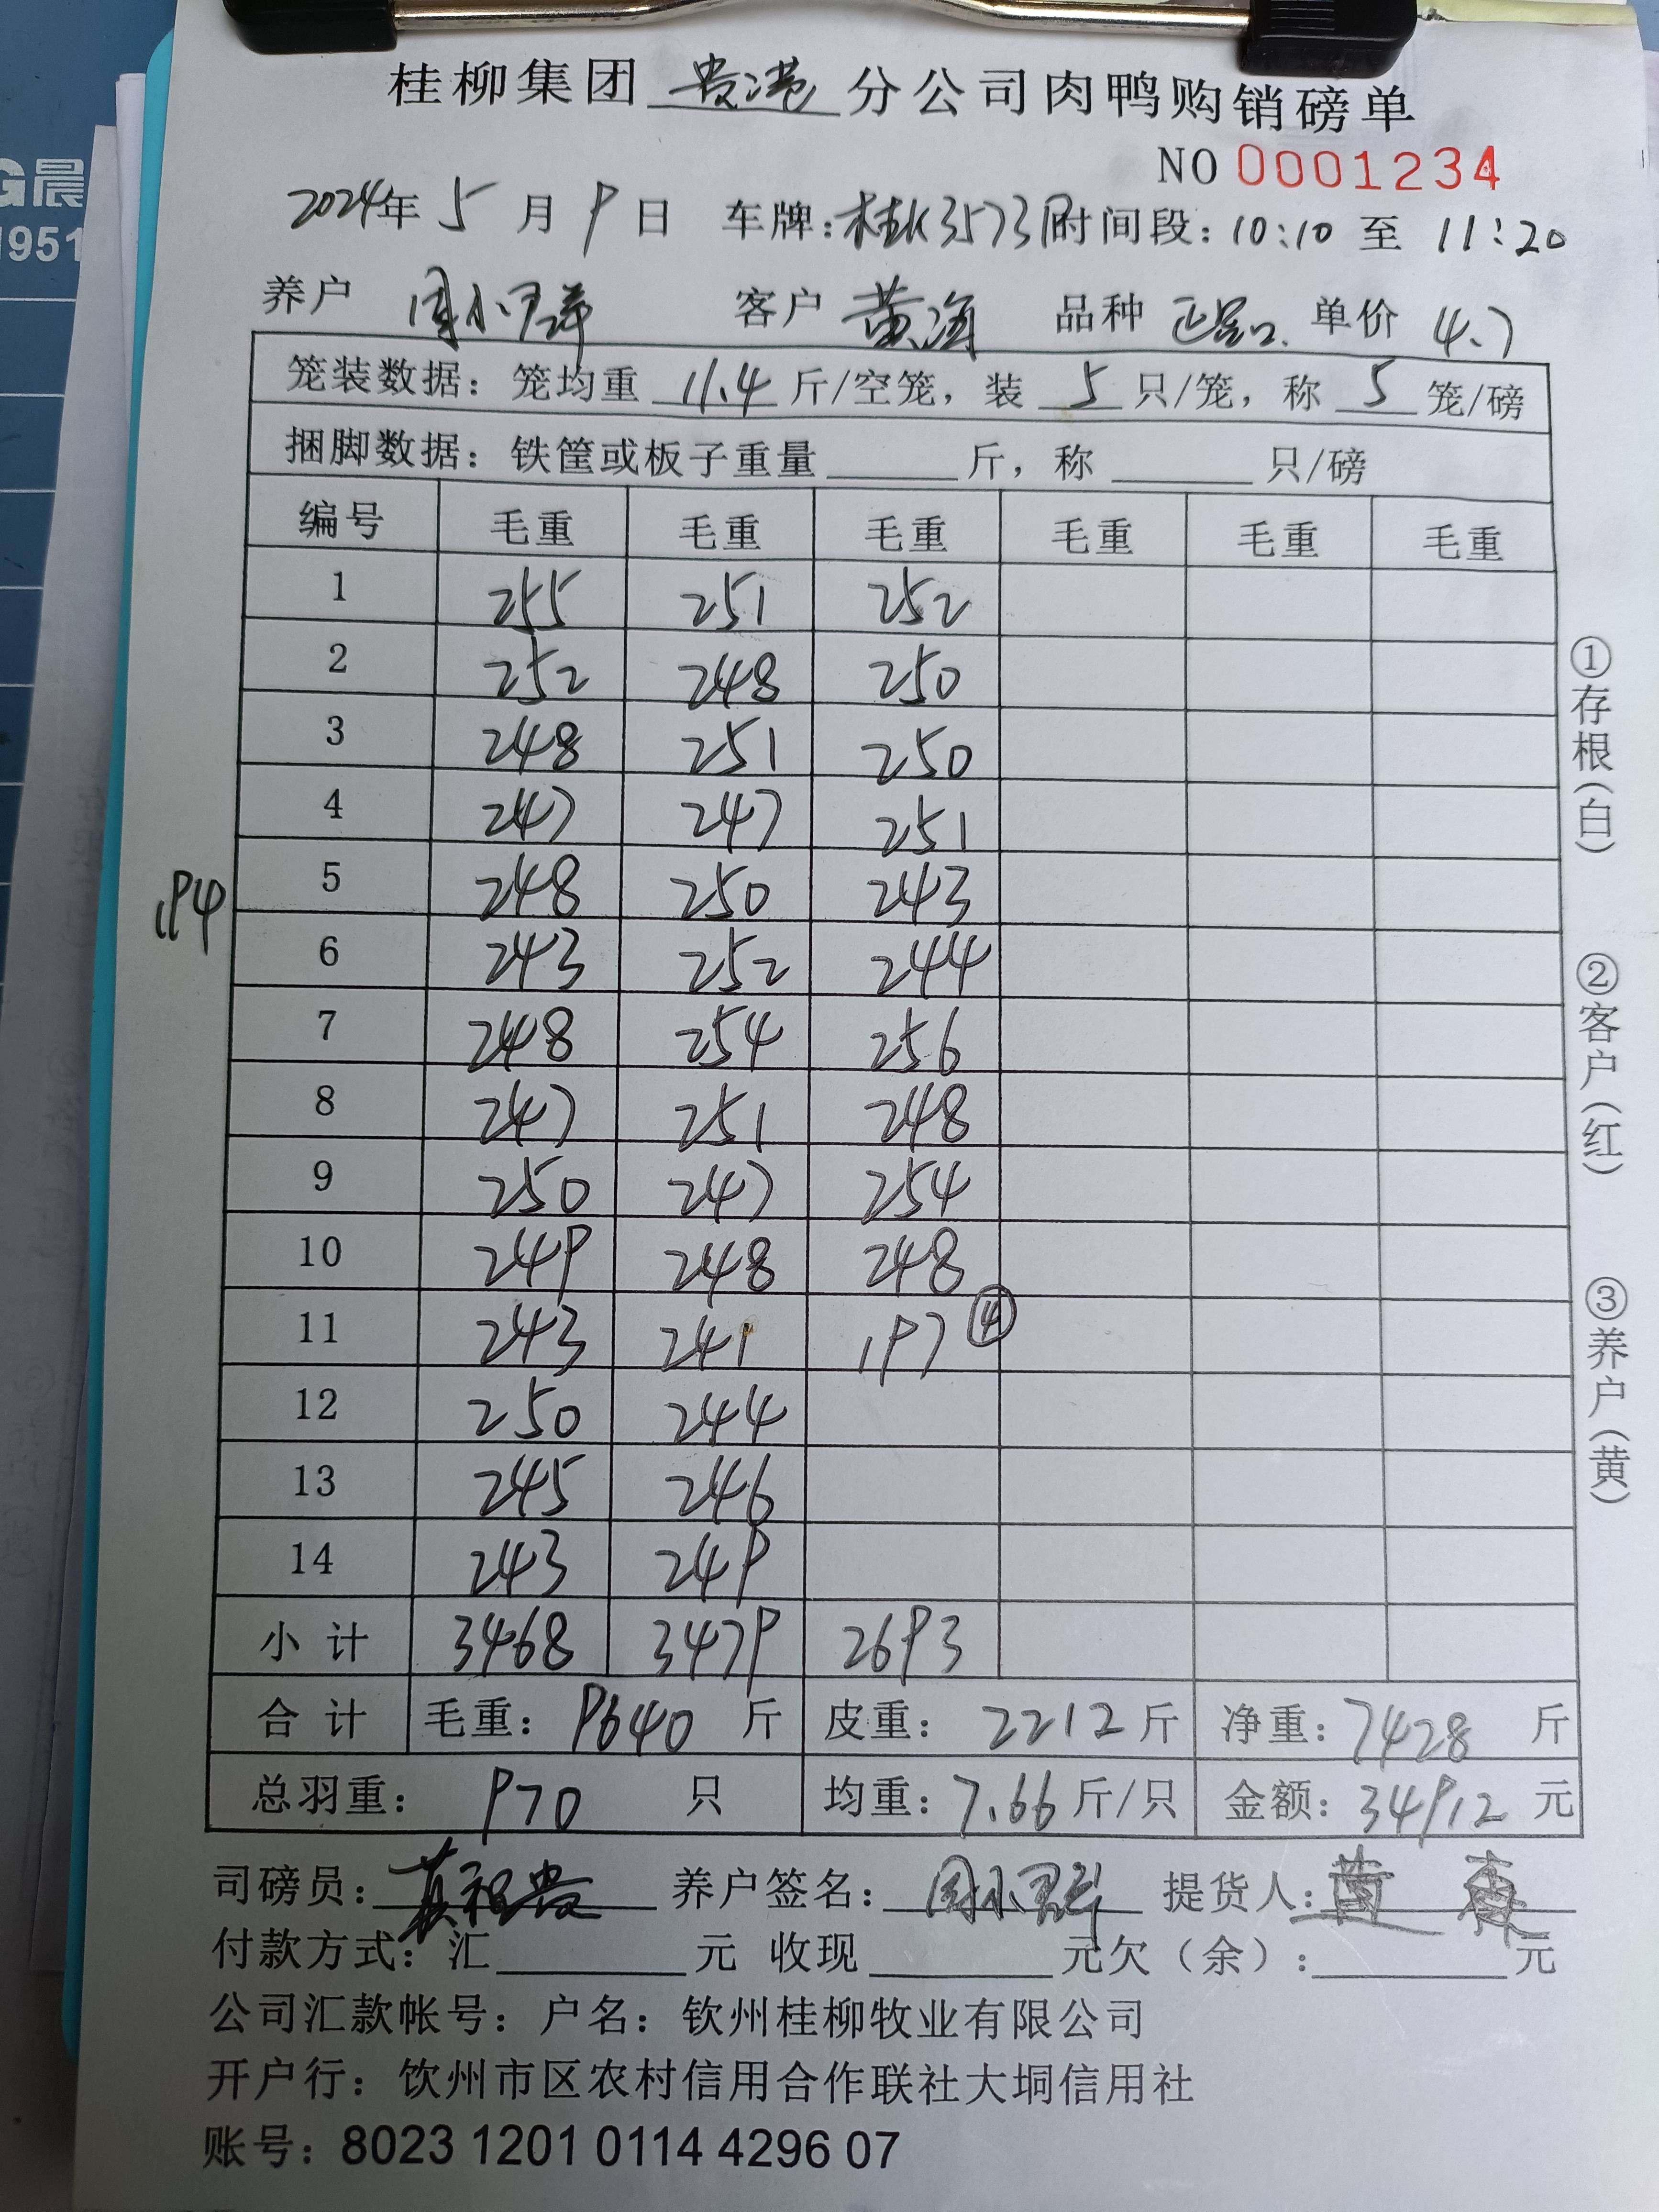 G晨
1951
桂柳集团 贵港 分公司肉鸭购销磅单
NO 0001234
2024年 5 月 9 日 车牌:桂K3573 时间段:10:10 至 11:20
养户 周小 客户 黄海 品种 单价 4.7
笼装数据:笼均重 11.4 斤/空笼,装 5 只/笼,称 5 笼/磅
捆脚数据:铁筐或板子重量 斤,称 只/磅
编号 毛重 毛重 毛重 毛重 毛重 毛重
1 255 251 252
2 252 248 250
3 248 251 250
4 247 247 251
194
5 248 250 243
6 243 252 244
7 248 254 256
8 247 251 248
9 250 247 254
10 249 248 248
11 243 241 197 ④
12 250 244
13 245 246
14 243 249
小计 3468 3479 2693
合计 毛重:9640 斤 皮重:2212斤 净重:7428 斤
总羽重:970 只 均重:7.66斤/只 金额:34912 元
①存根(白)
②客户(红)
③养户(黄)
司磅员: 养户签名:周小 提货人:黄
付款方式:汇 元 收现 元欠(余): 元
公司汇款帐号:户名:钦州桂柳牧业有限公司
开户行:饮州市区农村信用合作联社大垌信用社
账号:8023 1201 0114 4296 07